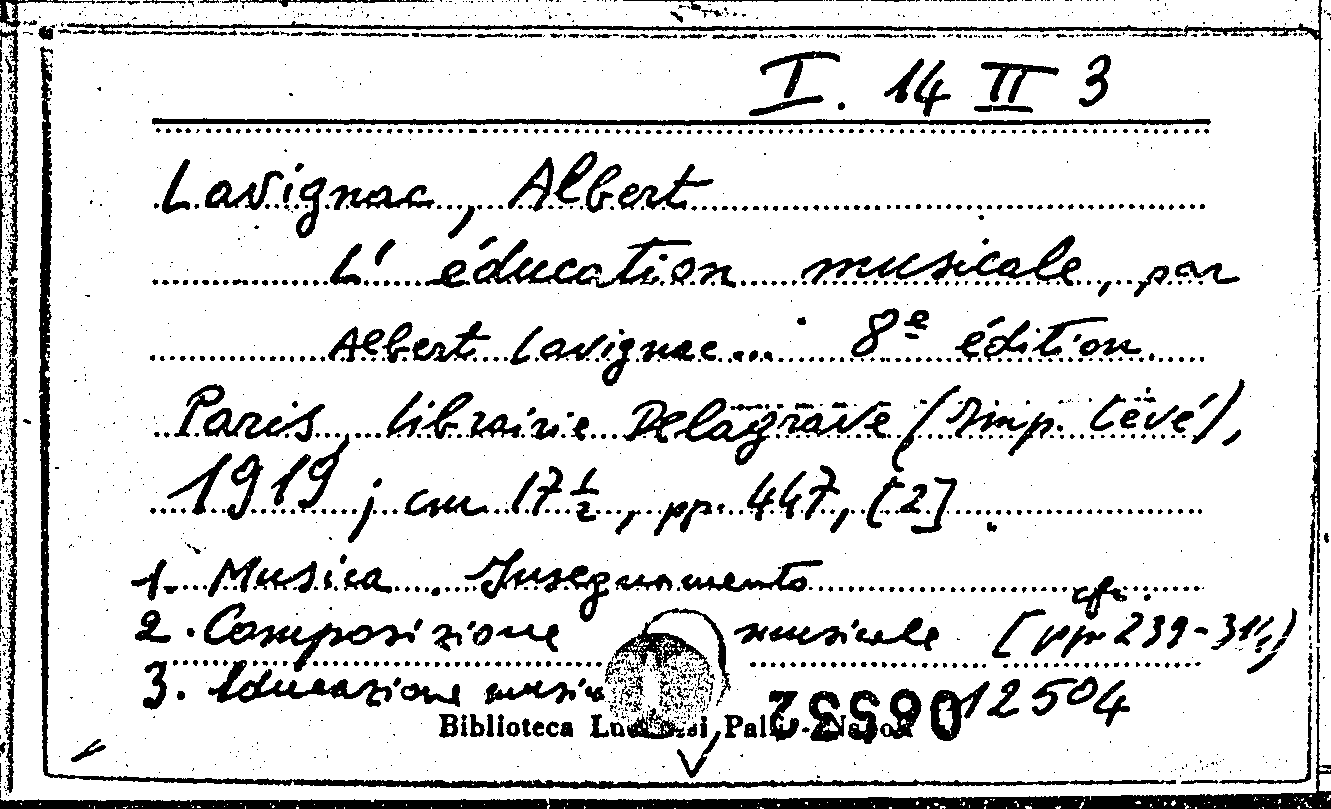 I. 14 II 3
Lavignac, Albert
L' éducation musicale, par
Albert Lavignac... 8e édition
Paris, librairie Delagrave (Imp. Lévé),
1919; cm 17 1/2, pp. 447, [2].
1. Musica. Insegnamento
cfr.
2. Composizione musicale (pp. 239-311)
3. Educazione
12504
Biblioteca